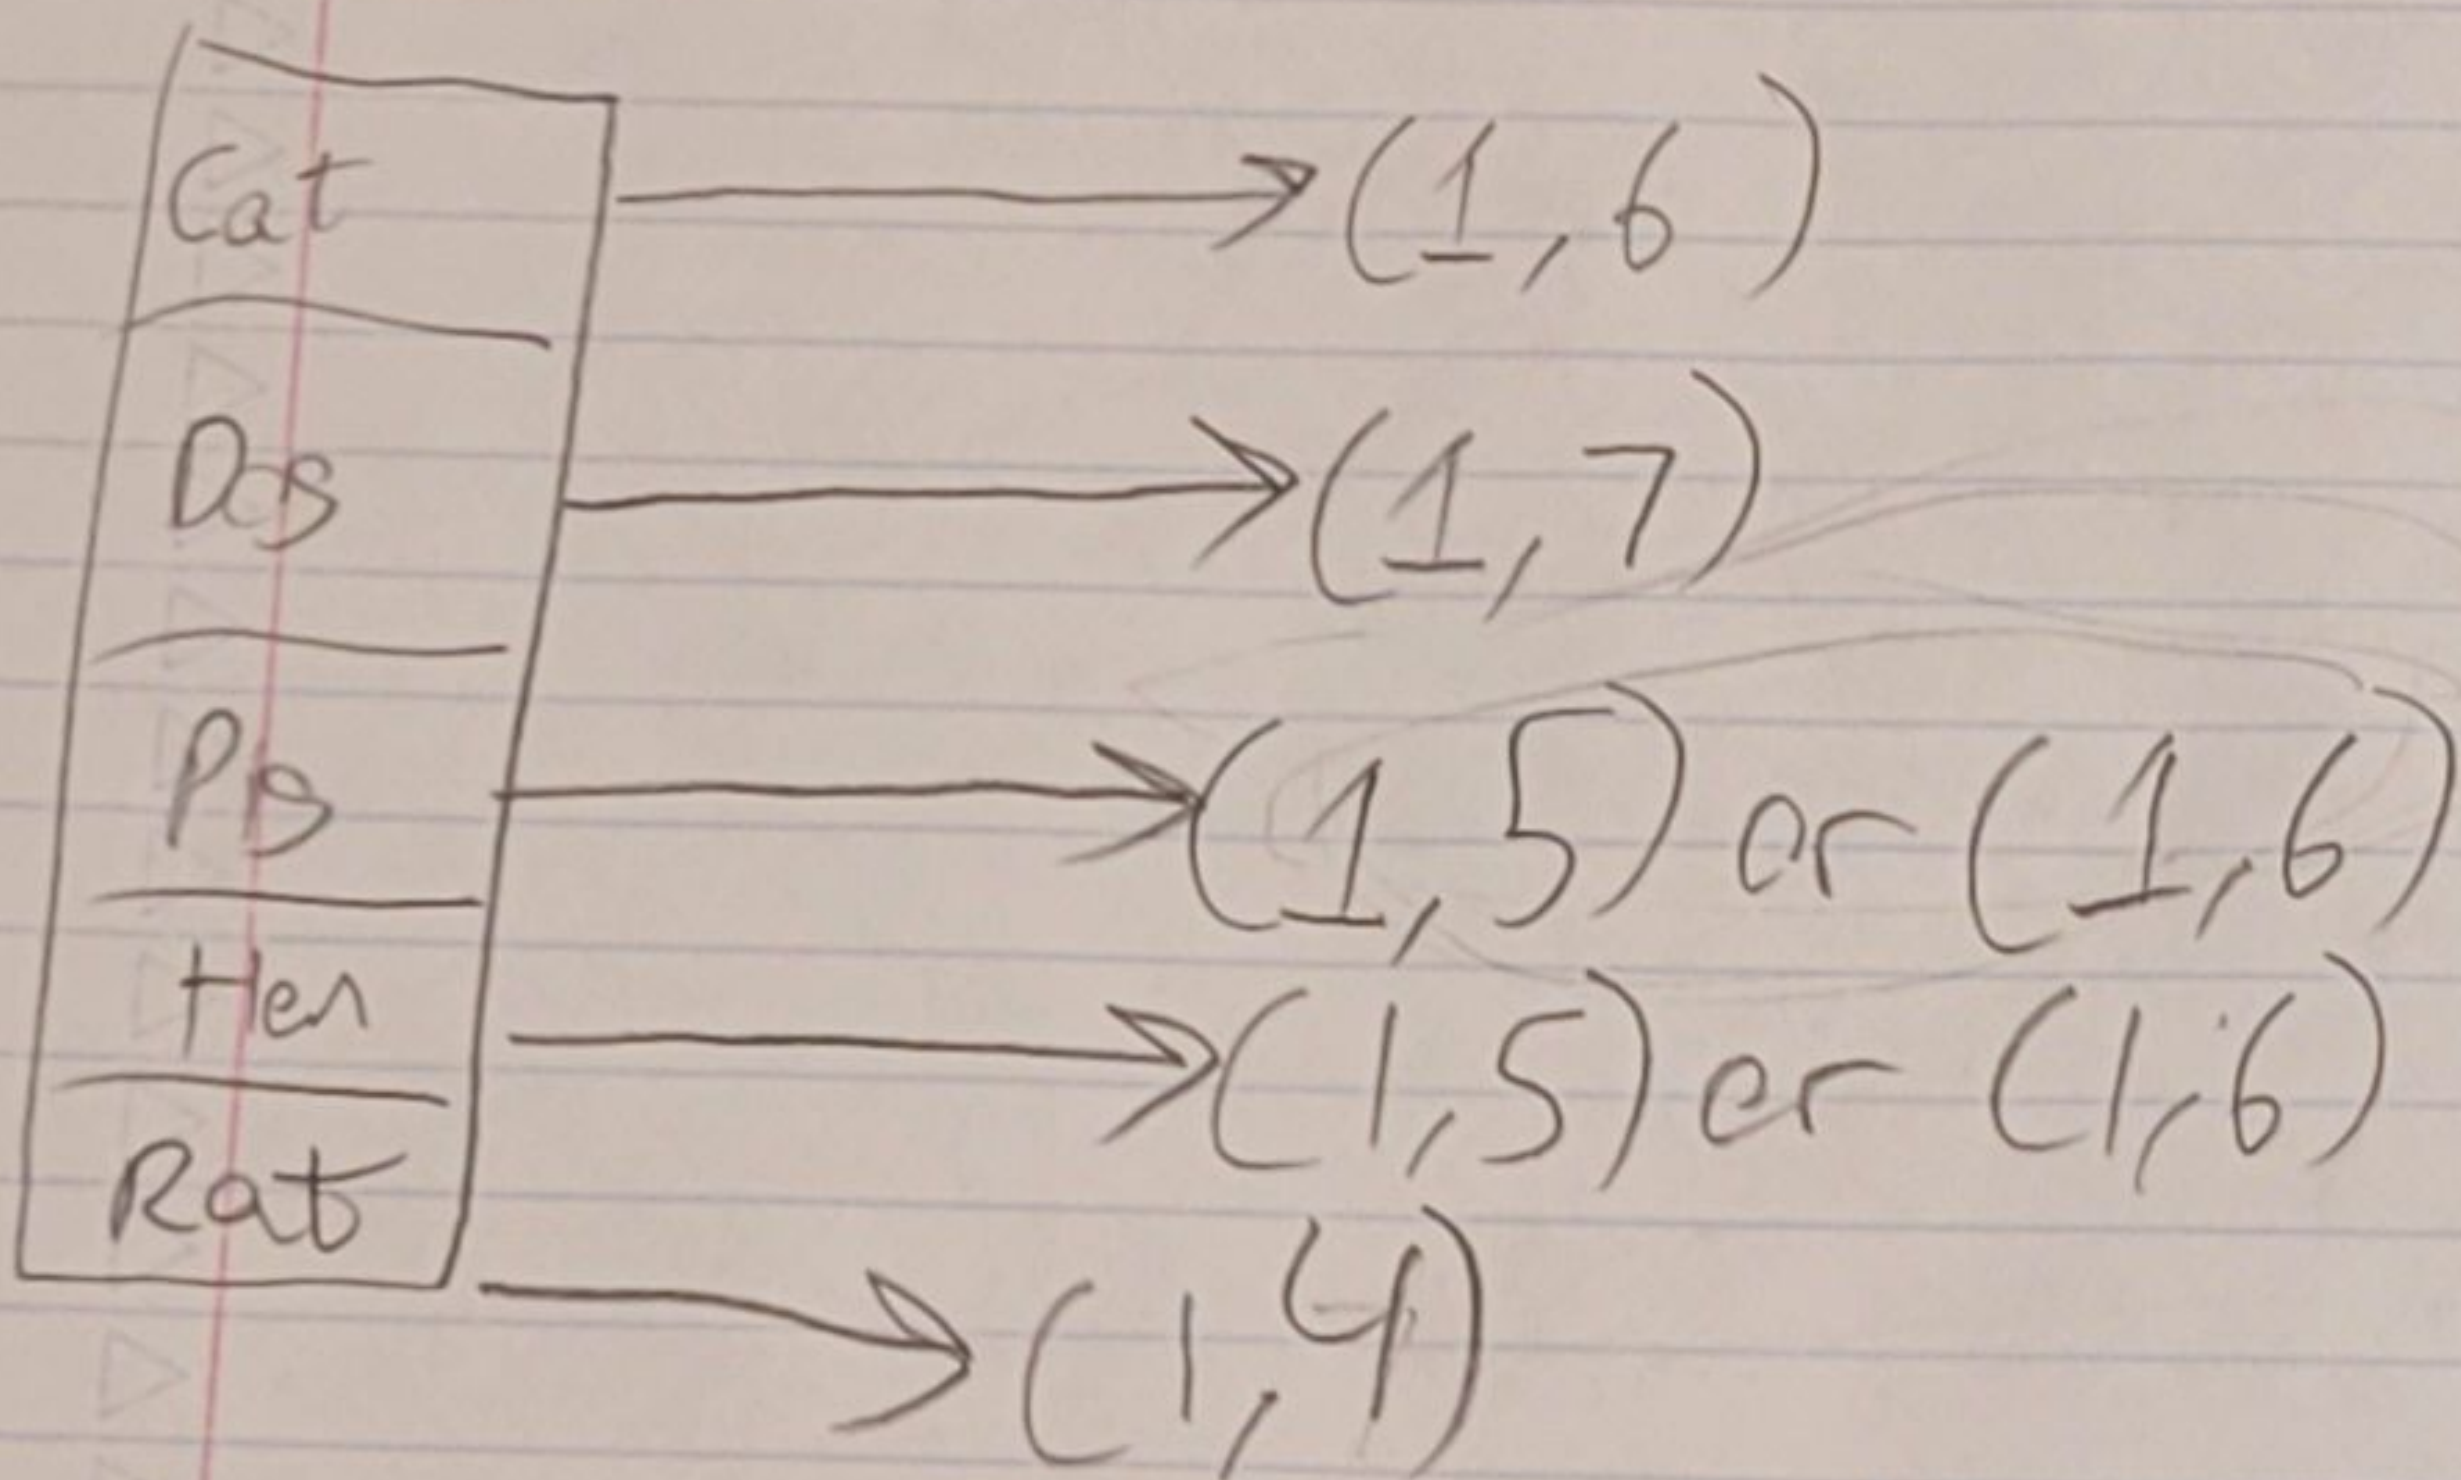 Cat → (1,6)
Dog → (1,7)
Pig → (1,5) or (1,6)
Hen → (1,5) or (1,6)
Rat → (1,4)